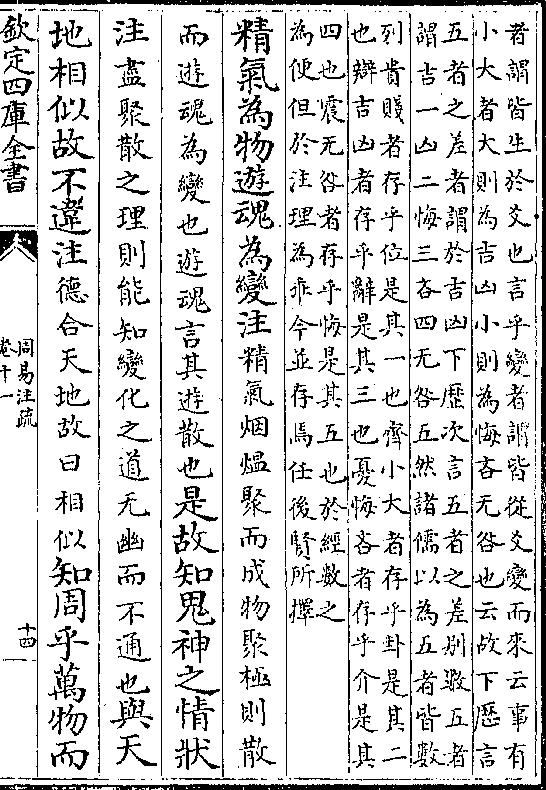 者謂皆生於爻也言乎變者謂皆從爻變而來云事有
小大者大則為吉凶小則為悔吝无咎也云故下歷言
五者之差者謂於吉凶下歷次言五者之差别數五者
謂吉一凶二悔三吝四无咎五然諸儒以為五者皆數
列貴賤者存乎位是其一也齊小大者存乎卦是其二
也辯吉凶者存乎辭是其三也憂悔吝者存乎介是其
四也震无咎者存乎悔是其五也於經數之
為便但於注理為乖今並存焉任後賢所擇
精氣為物遊魂為變注精氣烟熅聚而成物聚極則散
而遊魂為變也遊魂言其遊散也是故知鬼神之情狀
注盡聚散之理則能知變化之道无幽而不通也與天
地相似故不違注德合天地故曰相似知周乎萬物而
欽定四庫全書
周易注疏
卷十一
十四